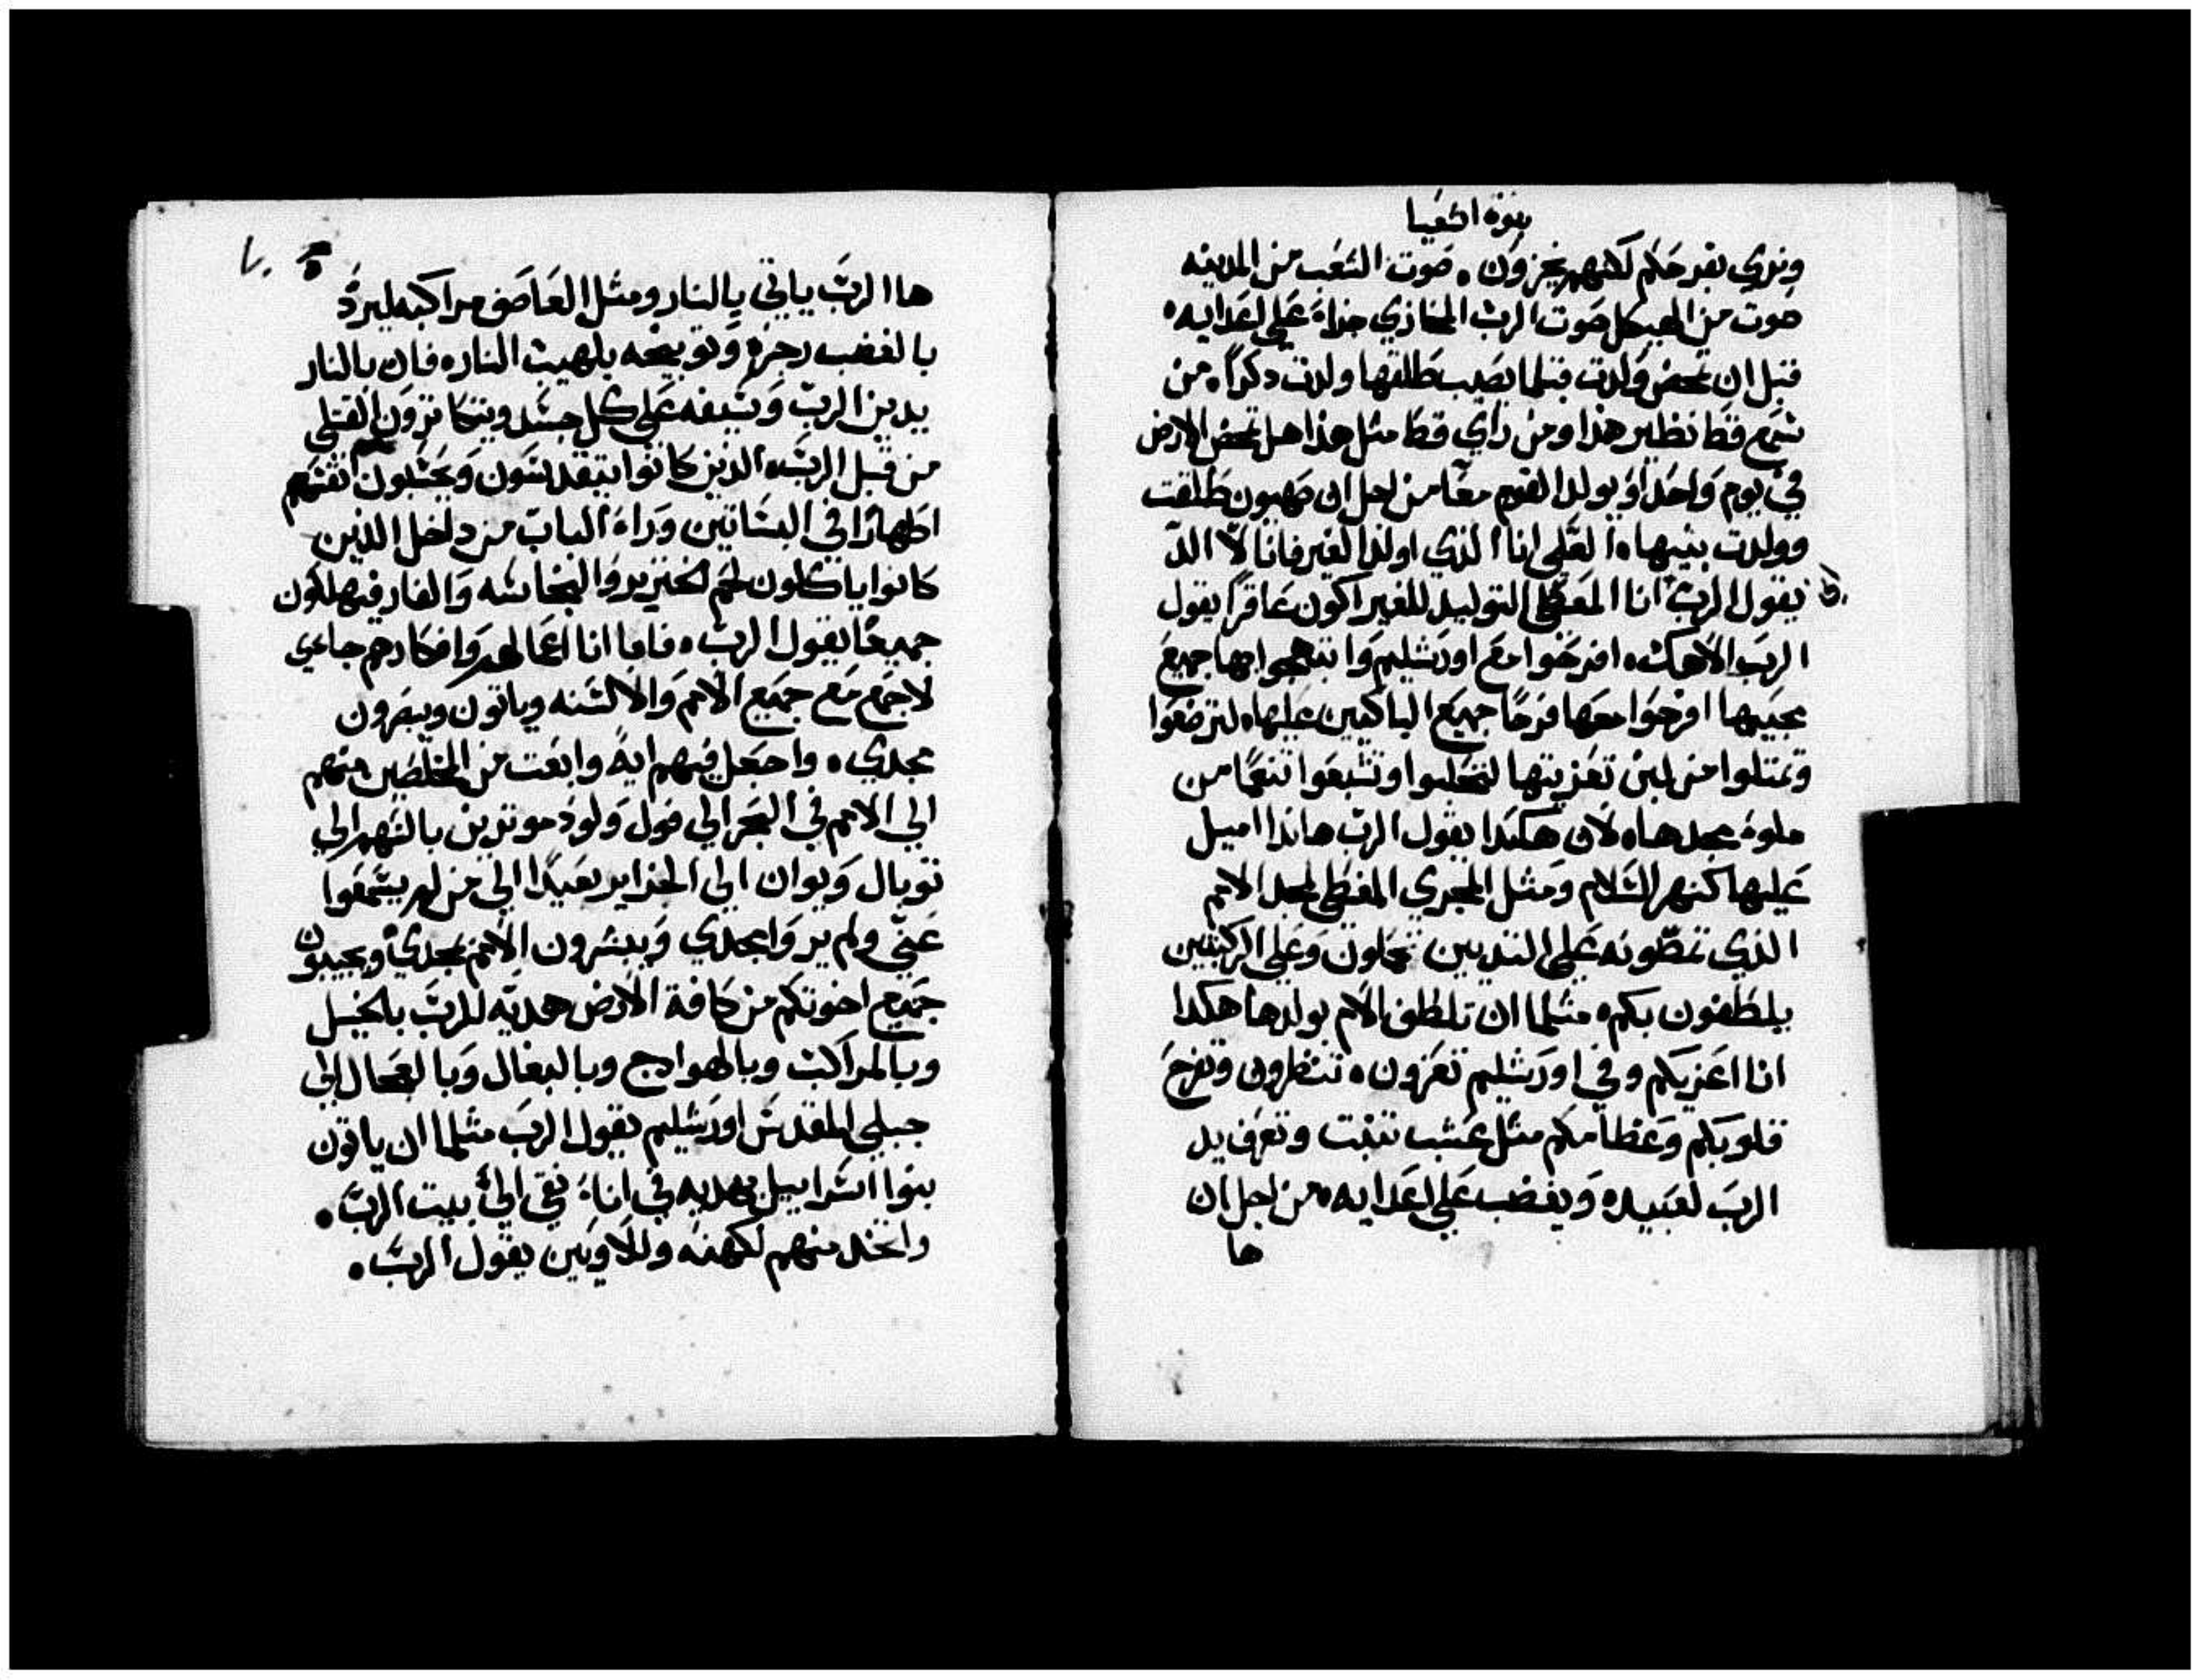 نبوة اشعيا
ونري بفرحكم لكنهم يخزون . صوت الشعب من المدينه
صوت من الهيكل صوت الرب المجازي جزاء علي اعدايه .
قبل ان تمخض ولدت قبلما يصيب طلقها ولدت دكراً . من
سمع قط نظير هذا ومن راي قط مثل هذا هل تمخض الارض
في يوم واحد او يولد القوم معًا من اجل ان صهيون طلقت
وولدت بنيها . العلي انا الذي اولد الغير فانا لا الد
يقول الرب انا المعطي التوليد للغير اكون عاقرًا يقول
الرب الاهك . افرحوا مع اورشليم وابتهجوا بها جميع
محبيها افرحوا معها فرحًا جميع الباكيين عليها . لترضعوا
وتمتلوا من لبن تعزيتها لتحلبوا وتشبعوا تنعمًا من
ملوة مجدها . لان هكذا يقول الرب هاندا اميل
عليها كنهر السلام ومثل المجري المغطي لمجد الامم
الذي تمصّونه علي الثديين تحملون وعلي الركبتين
يلطفون بكم . مثلما ان تلطف الام بولدها هكدا
انا اعزيكم وفي اورشليم تعزون . تنظرون وتفرح
قلوبكم وعظامكم مثل عشب تنبت وتعرف يد
الرب لعبيده ويغضب علي اعدايه . من اجل ان
ها
٧٠
ها الرب ياتي بالنار ومثل العاصف مراكبه ليردّ
بالغضب رجزه وتوبيخه بلهيب النار . فان بالنار
يدين الربّ وبسيفه علي كل جسد ويتكاثرون القتلي
من قبل الرب . الذين كانوا يتقدسون ويحسبون انفسهم
اطهارًا في البساتين وراء الباب من داخل الذين
كانوا ياكلون لحم الخنزير والنجاسه والفار فيهلكون
جميعًا يقول الرب . فاما انا اعمالهم وافكارهم جاءي
لاجمع مع جميع الامم والالسنه وياتون ويبصرون
مجدي . واجعل فيهم ايةً وابعت من المخلصين منهم
الي الامم في البحر الي فول ولود موترين بالسهم الي
توبال ويوان الي الجزاير بعيدًا الي من لم يسمعوا
عني ولم يروا مجدي ويبشرون الامم بمجدي ويجيبون
جميع اخوتكم من كافة الارض هديّه للرب بالخيل
وبالمراكب وبالهوادج وبالبغال وبالعجال الي
جبلي المقدس اورشليم يقول الرب مثلما ان ياتون
بنوا اسراييل بهديه في اناء نقي الي بيت الرب .
واتخد منهم لكهنه وللاويين يقول الرب .